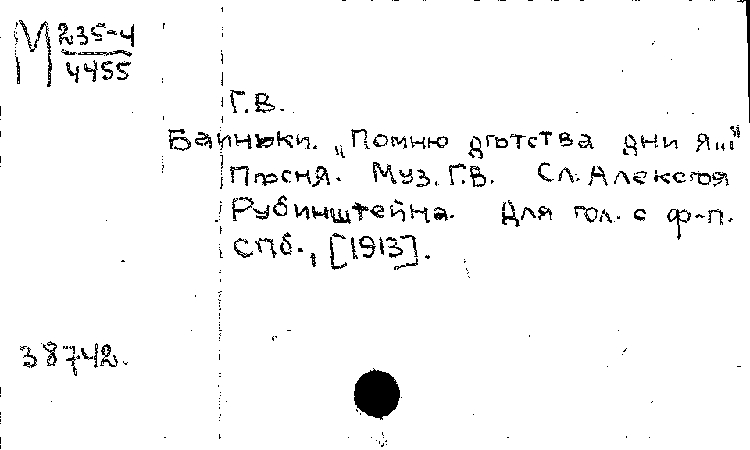 М 235-4
4455
Г.В.
Баиньки. „Помню дѣтства дни я..."
Пѣсня. Муз. Г.В. Сл. Алексѣя
Рубинштейна. Для гол. с ф-п.
СПб., [1913].
38742.